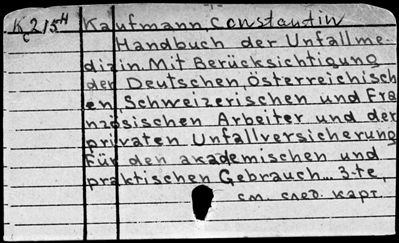 Kc 215H Kaufmann, Constantin
Handbuch der Unfallme-
dizin. Mit Berücksichtigung
der Deutschen, Österreichisch
en, Schweizerischen und Fra
nzösischen Arbeiter und der
privaten Unfallversicherung
Für den akademischen und
praktischen Gebrauch... 3-te,
см. след. карт.